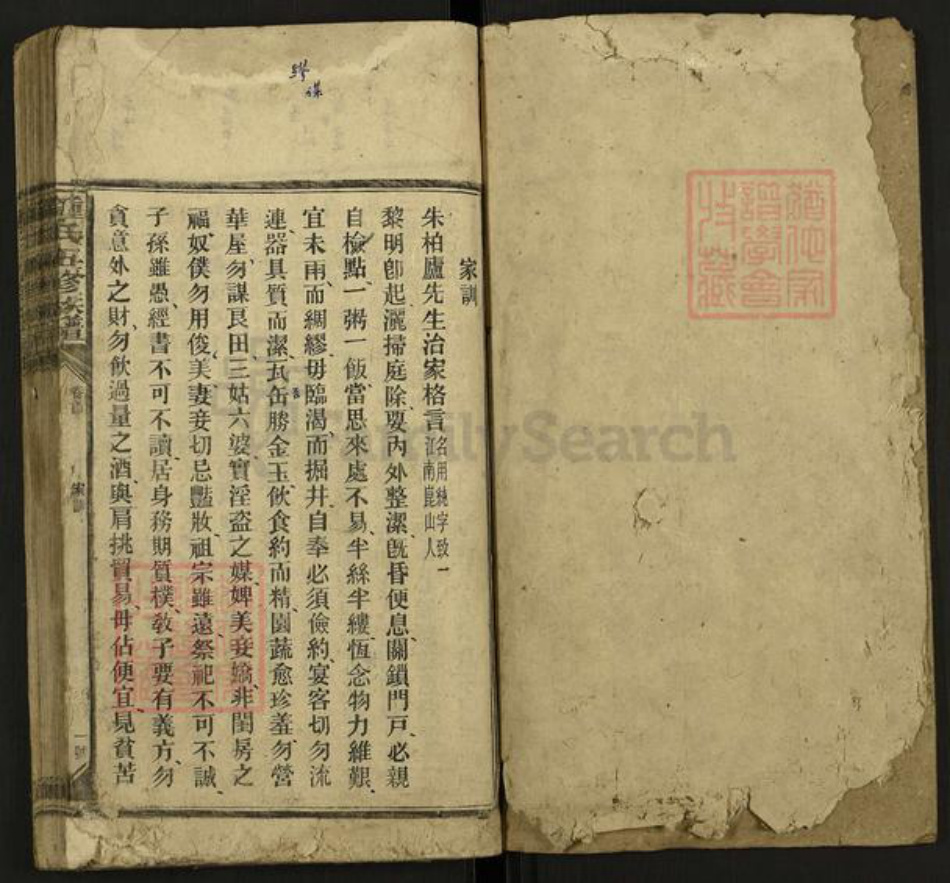 家訓
朱柏廬先生治家格言 名用純字致一 江南崑山人
黎明卽起、灑掃庭除、要內外整潔、旣昏便息、關鎖門戸、必親
自檢點、一粥一飯、當思來處不易、半絲半縷、恆念物力維艱、
宜未雨、而綢繆、毋臨渴、而掘井、自奉必須儉約、宴客切勿流
連、器具質而潔、瓦缶勝金玉、飲食約而精、園蔬愈珍羞、勿營
華屋、勿謀良田、三姑六婆、實淫盜之媒、婢美妾嬌、非閨房之
福、奴僕勿用俊美、妻妾切忌艷妝、祖宗雖遠、祭祀不可不誠、
子孫雖愚、經書不可不讀、居身務期質樸、敎子要有義方、勿
貪意外之財、勿飲過量之酒、與肩挑貿易、毋佔便宜、見貧苦
鍾氏五修族譜
卷首
家訓
繆
謀
猶他家
譜學會
收藏
FamilySearch